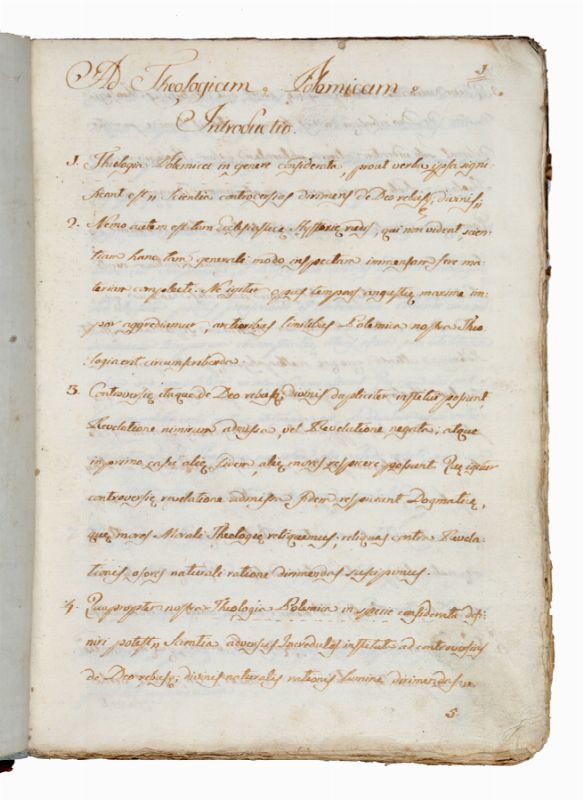 1
Ad Theologiam Polemicam
Introductio
1. Theologia Polemica in genere considerata, prout verba ipsa signi-
ficant est „ Scientia controversias dirimens de Deo rebusq; divinis „
2. Nemo autem est tam Ecclesiasticę Hystorię rudis, qui non videat scien-
tiam hanc tam generali modo inspectam immensam fere ma-
teriam complecti. Ne igitur opus tempori angustię maxime im-
par aggrediamur, arctioribus limitibus Polemica nostra Theo-
logia erit circumscribenda.
3. Controversię itaque de Deo rebusq; divinis dupliciter institui possunt,
Revelatione nimirum admissa, vel Revelatione negata; atque
in primo casu alię fidem, alię mores respicere possunt. Quę igitur
controversię revelatione admissa fidem respiciunt Dogmaticę,
quę mores Morali Theologię relinquemus; reliquas contra Revela-
tionis osores naturali ratione dirimendas suscipimus.
4. Quapropter nostra Theologia Polemica in specie considerata defi-
niri potest „ Scientia adversus Incredulos instituta ad controversias
de Deo rebusq; divinis naturalis rationis lumine dirimendas „
5.